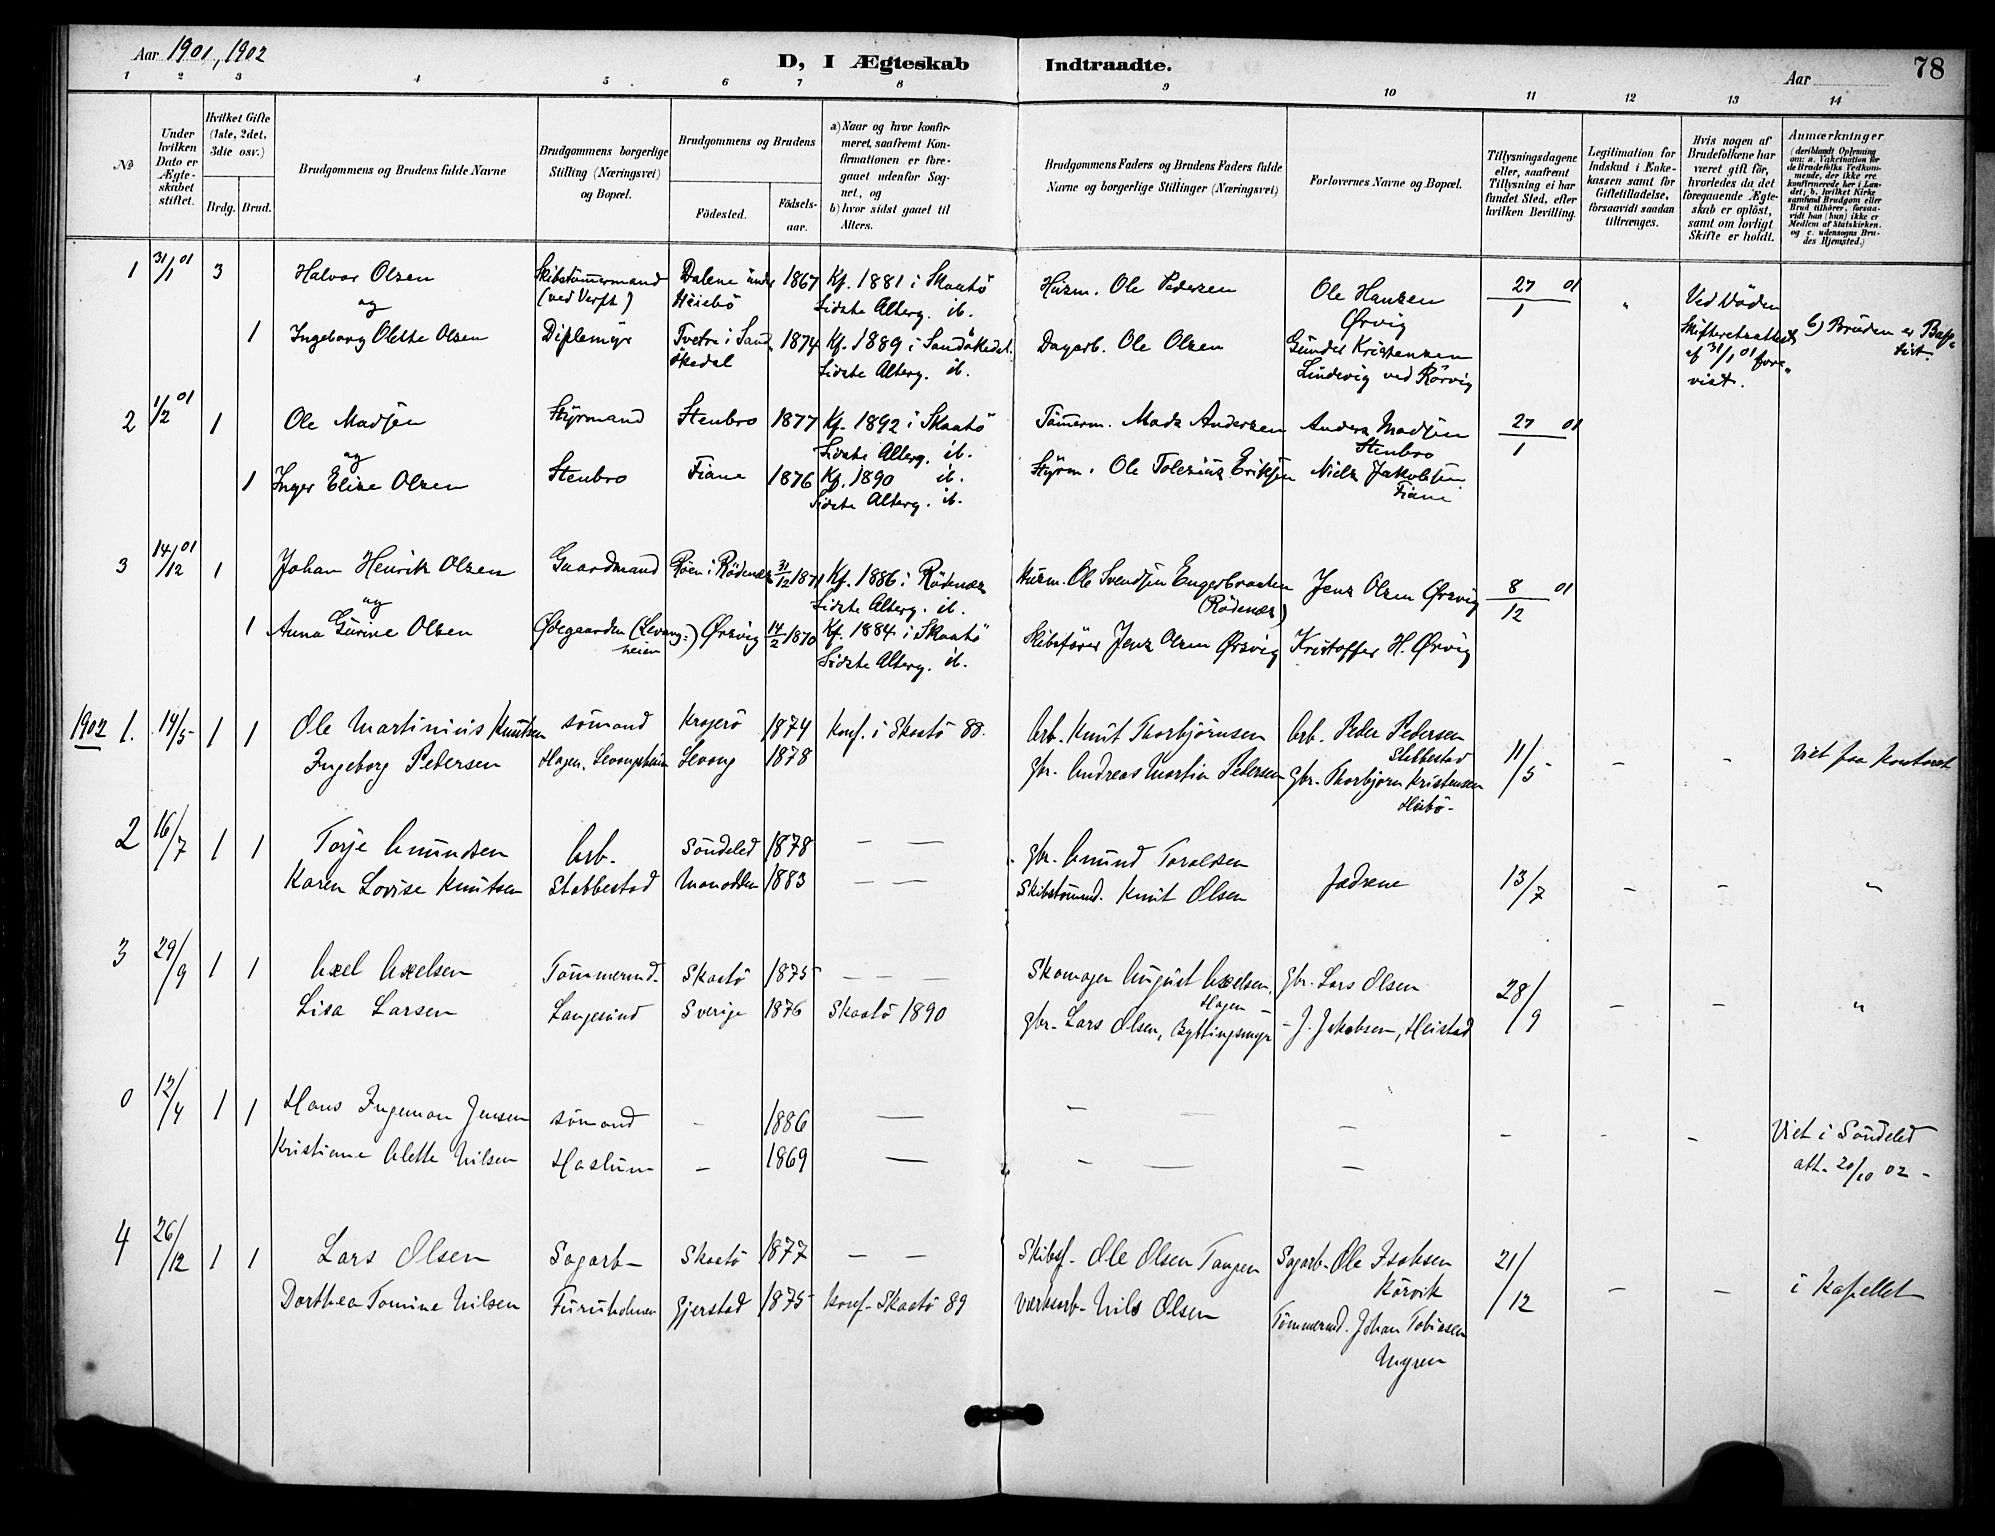 Aar 1901, 1902
D, I Ægteskab Indtraadte.
Aar
78
1 2 3 4 5 6 7 8 9 10 11 12 13 14
No
Under hvilken Dato er Ægteskabet stiftet.
Hvilket Gifte (1ste, 2det, 3die osv.)
Brdg. Brud.
Brudgommens og Brudens fulde Navne
Brudgommens borgerlige Stilling (Næringsvei) og Bopæl.
Brudgommens og Brudens
Födested.
Födselsaar.
a) Naar og hvor konfirmeret, saafremt Konfirmationen er foregaaet udenfor Sognet, og
b) hvor sidst gaaet til Alters.
Brudgommens Faders og Brudens Faders fulde Navne og borgerlige Stillinger (Næringsvei)
Forlovernes Navne og Bopæl.
Tillysningsdagene eller, saafremt Tillysning ei har fundet Sted, efter hvilken Bevilling.
Legitimation for Indskud i Enkekassen samt for Giftetilladelse, forsaavidt saadan tiltrænges.
Hvis nogen af Brudefolkene har været gift før, hvorledes da det foregaaende Ægteskab er oplöst, samt om lovligt Skifte er holdt.
Anmærkninger
(deriblandt Oplysning om: a. Vakcination för de Brudefolks Vedkommende, der ikke ere konfirmerede her i Landet; b. hvilket Kirkesamfund Brudgom eller Brud tilhörer, forsaavidt han (hun) ikke er Medlem af Statskirken. og c. udensogns Brudes Hjemsted.)
1 31/1 01 3 Halvor Olsen Skibstømmermand Dalene under 1867 Kf. 1881 i Skaatö Husm. Ole Pedersen Ole Hansen 27/1 01 " Ved Döden
og (ved Verft) Heiebö Sidste Alterg. ib. Ørvig Skifteretsattest
1 Ingeborg Olette Olsen Diplemyr Tvetra i Sand 1874 Kf. 1889 i Sandökedal. Dagarb. Ole Olsen Gunder Kristensen af 31/1 01 fore b) Bruden er Bap
ökedal Sidste Alterg. ib. Lindvig ved Rörvig vist. tist.
2 1/2 01 1 Ole Madsen Styrmand Stenbro 1877 Kf. 1892 i Skaatö Tömerm. Mads Andersen Anders Madsen 27/1 01
og Sidste Alterg. ib. Stenbro
1 Inger Elise Olsen Stenbro Fiane 1876 Kf. 1890 ib. Styrm. Ole Tolesius Eriksen Niels Jakobsen
Sidste Alterg. ib. Fiane
3 14/12 01 1 Johan Henrik Olsen Gaardmand Röen i Rödenæs 31/12 1871 Kf. 1886 i Rödenæs Husm. Ole Svendsen Engerbraaten Jens Olsen Ørsvig 8/12 01
og Sidste Alterg. ib. (Rödenæs)
1 Anna Gurine Olsen Ødegaarden (Levangheien) Ørsvig 14/2 1870 Kf. 1884 i Skaatö Skibsfører Jens Olsen Ørsvig Kristoffer H. Ørvig
Sidste Alterg. ib.
1902 1. 14/5 1 1 Ole Martinius Knutsen sömand Kragerö 1874 Konf. i Skaatö 88. Arb. Knut Thorbjörnsen Arb. Peder Pedersen
Stabbestad
Ingeborg Pedersen Hagen, Levangsheien Levang 1878 gbr. Andreas Martin Pedersen gbr. Thorbjörn Kristensen 11/5 - - Viet paa Kontoret
Heibö
2 16/7 1 1 Torje Amundsen Arb. Söndeled 1878 — — gbr. Amund Taraldsen
Karen Lovise Knutsen Stabbestad Manodden 1883 — — Skibstömmd. Knut Olsen Fædrene 13/7 - - "
3 29/9 1 1 Axel Axelsen Tömmermd. Skaatö 1875 — — — Skomager August Axelsen, gbr. Lars Olsen
Hagen
Lisa Larsen Langesund Sverige 1876 Skaatö 1890 gbr. Lars Olsen, Byttingsmyr - J. Jakobsen, Heistad 28/9 - - "
0 12/4 1 1 Hans Ingeman Jensen sömand - 1886 — - — — - - - Viet i Söndeled
Kristiane Alette Nilsen Haslum - 1869 — - — — att. 20/10 02 -
4 26/12 1 1 Lars Olsen Sagarb. Skaatö 1877 — — Skibsf. Ole Olsen Tangen Sagarb. Ole Isaksen 21/12
Körvik
Dorthea Tomine Nilsen Furuholmen Gjerstad 1875 Konf. Skaatö 89 Værksarb. Nils Olsen Tömmermd. Johan Tobiasen - - i Kapellet
Myren